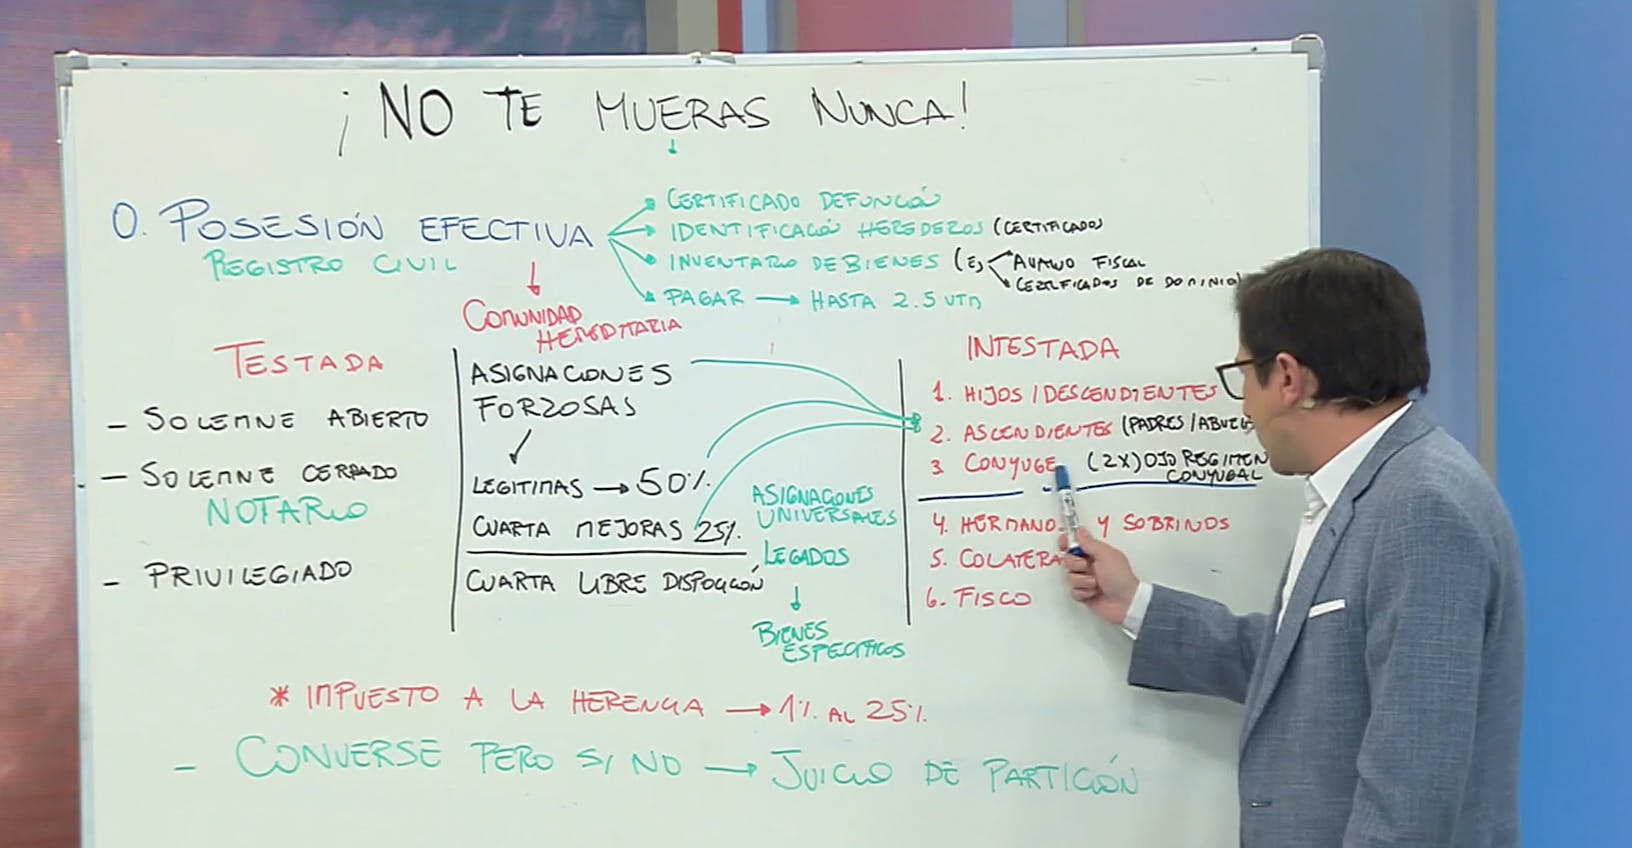 ¡NO TE MUERAS NUNCA!
0. POSESIÓN EFECTIVA
REGISTRO CIVIL
CERTIFICADO DEFUNCIÓN
IDENTIFICACIÓN HEREDEROS (CERTIFICADO)
INVENTARIO DE BIENES
AVALUO FISCAL
CERTIFICADOS DE DOMINIO
PAGAR → HASTA 2.5 UTM
COMUNIDAD
HEREDITARIA
TESTADA
- SOLEMNE ABIERTO
- SOLEMNE CERRADO
NOTARIO
- PRIVILEGIADO
ASIGNACIONES
FORZOSAS
LEGITIMAS → 50%.
CUARTA MEJORAS 25%.
CUARTA LIBRE DISPOCICIÓN
ASIGNACIONES
UNIVERSALES
LEGADOS
BIENES
ESPECIFICOS
INTESTADA
1. HIJOS / DESCENDIENTES
2. ASCENDIENTES (PADRES /
3 CONYUGE (2X) OJO REGIMEN
CONYUGAL
4. HERMANO Y SOBRINOS
5. COLATERA
6. FISCO
* IMPUESTO A LA HERENCIA → 1%. AL 25%.
- CONVERSE PERO SI NO → JUICIO DE PARTICIÓN